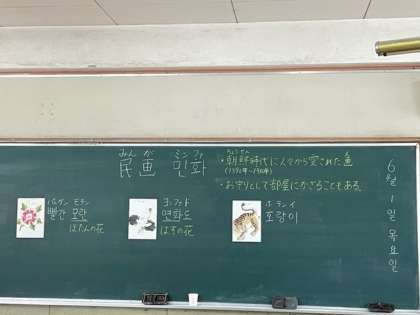 みん が ミン ファ
民画 민화
ちょうせん
・朝鮮時代に人々から愛された画
(1392年~1910年)
・お守りとして部屋にかざることもある。
パルガン モラン
빨간 모란
ぼたんの花
ヨンファド
연화도
はすの花
ホランイ
호랑이
6월 1일 목요일